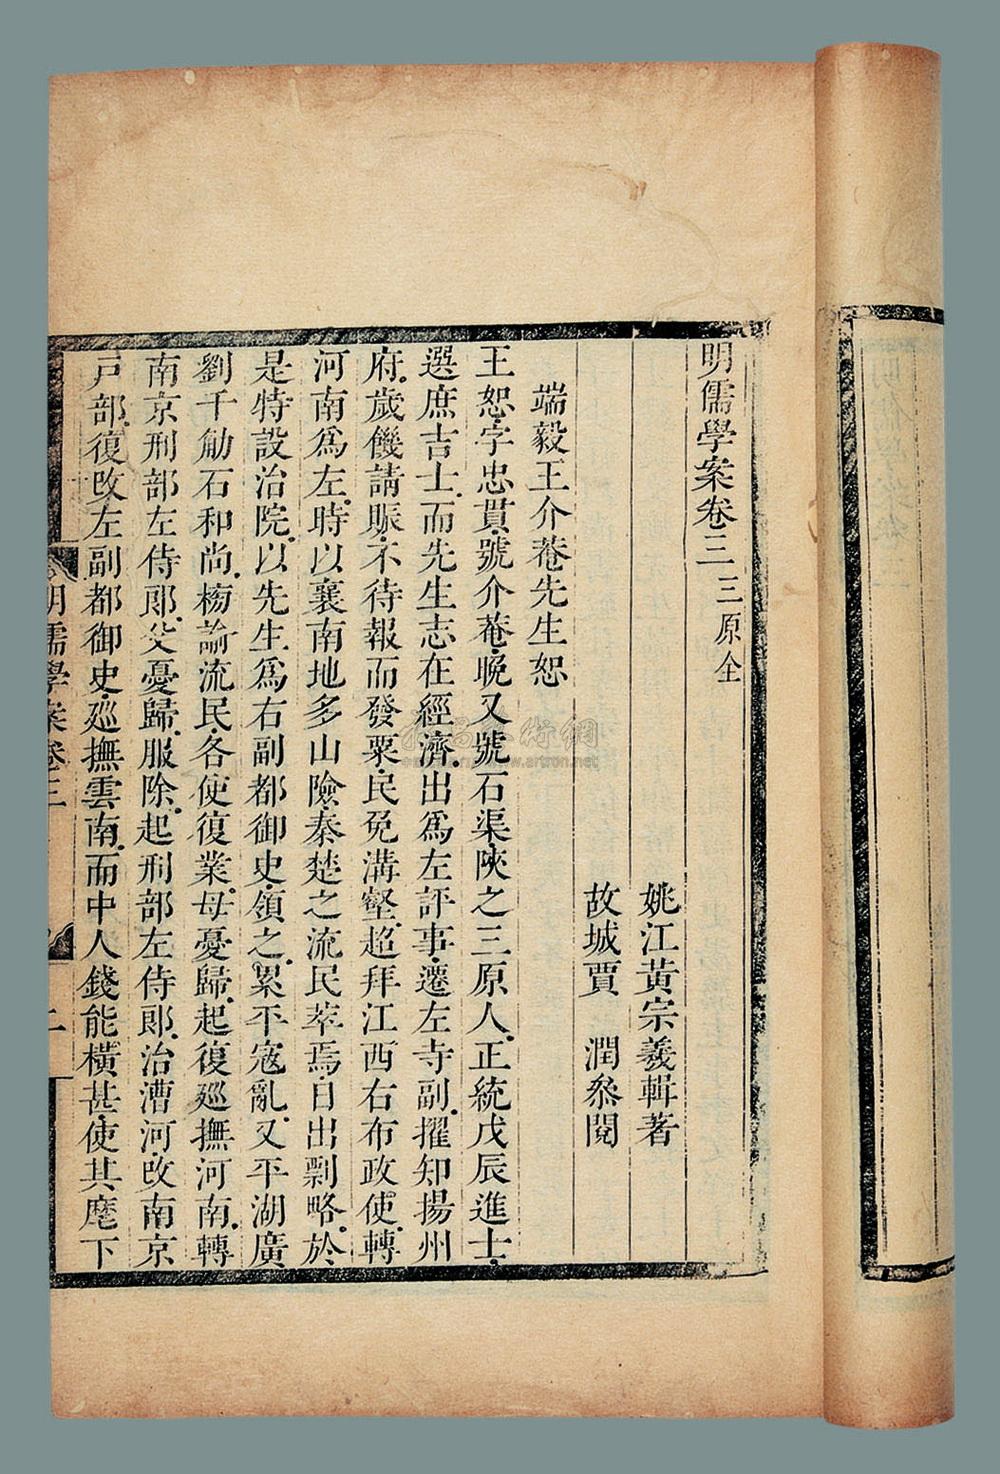 明儒學案卷三 三原全
姚江黃宗羲輯著
故城賈　潤叅閱
端毅王介菴先生恕
王恕字忠貫號介菴晚又號石渠陜之三原人正統戊辰進士
選庶吉士而先生志在經濟出爲左評事遷左寺副擢知揚州
府歲饑請賑不待報而發粟民免溝壑超拜江西右布政使轉
河南爲左時以襄南地多山險秦楚之流民萃焉日出剽略於
是特設治院以先生爲右副都御史領之累平寇亂又平湖廣
劉千觔石和尚榜諭流民各使復業母憂歸起復廵撫河南轉
南京刑部左侍郎父憂歸服除起刑部左侍郎治漕河改南京
戶部復改左副都御史廵撫雲南而中人錢能橫甚使其麾下
明儒學案卷三
二
www.artron.net